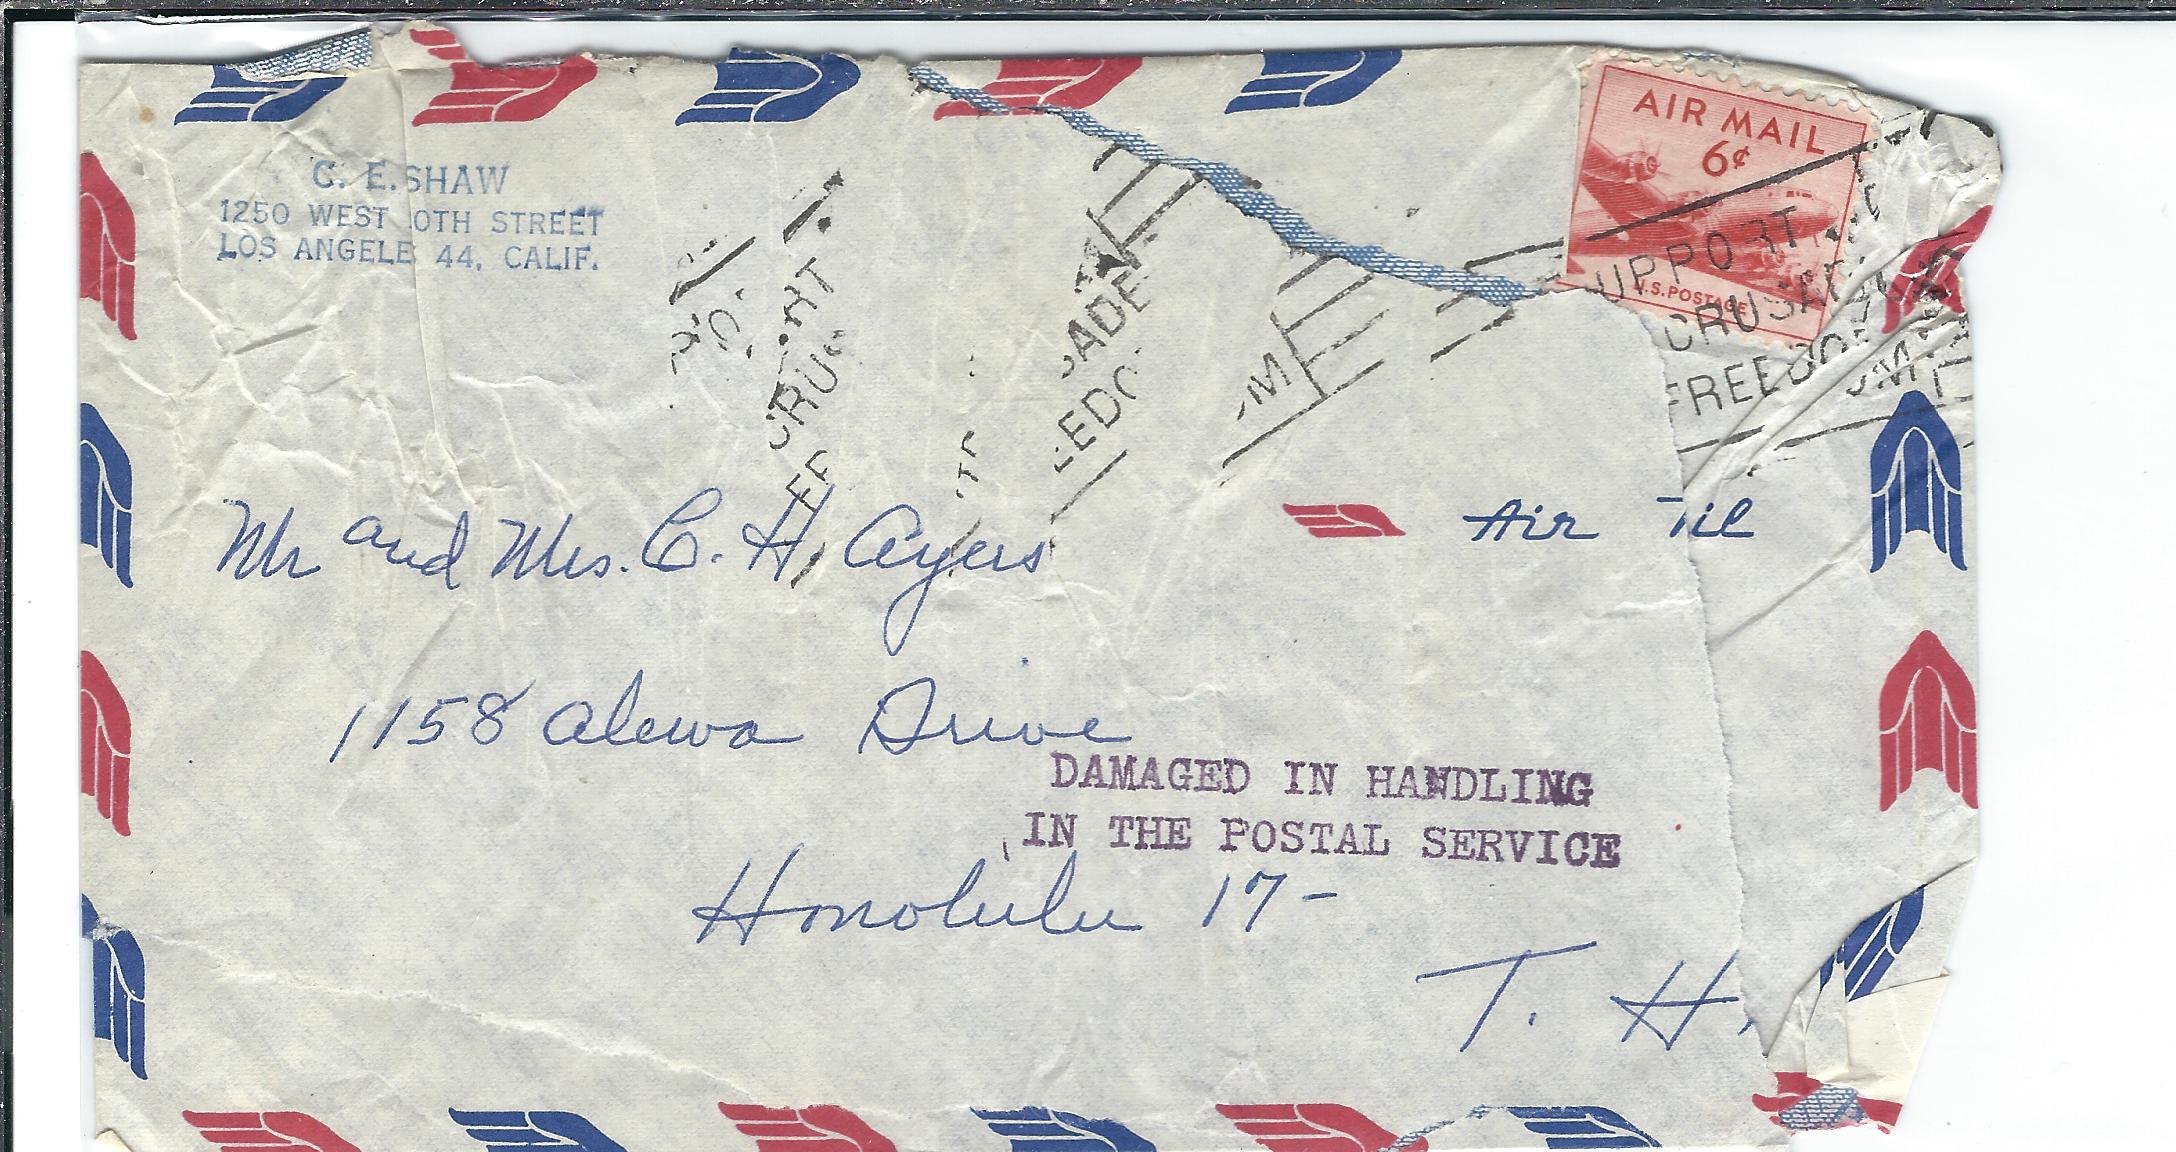 C. E. SHAW
1250 WEST 0TH STREET
LOS ANGELE 44, CALIF.
AIR MAIL
6¢
U.S. POSTAGE
UPPORT
CRUSA
FREEDO
OM
ORT
CRUS
ADE
EEDO
M
Air il
Mr and Mrs. C. H. Ayers
1158 Alewa Drive
DAMAGED IN HANDLING
IN THE POSTAL SERVICE
Honolulu 17-
T. H.